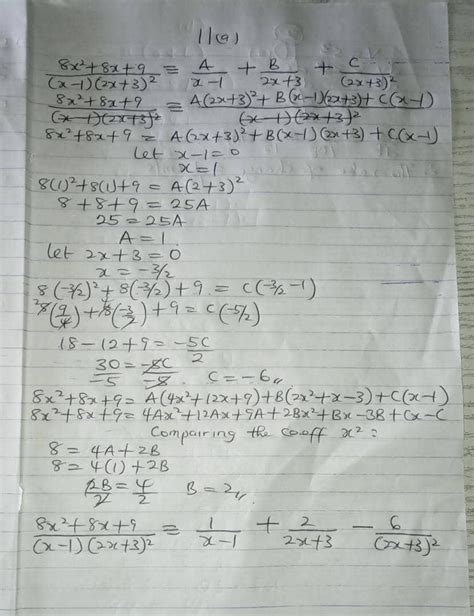 11(a)
(8x²+8x+9)/((x-1)(2x+3)²) ≡ A/(x-1) + B/(2x+3) + C/(2x+3)²
(8x²+8x+9)/((x-1)(2x+3)²) = (A(2x+3)²+B(x-1)(2x+3)+C(x-1))/((x-1)(2x+3)²)
8x²+8x+9 = A(2x+3)²+B(x-1)(2x+3)+C(x-1)
Let x-1=0
x=1
8(1)²+8(1)+9 = A(2+3)²
8+8+9 = 25A
25 = 25A
A=1.
let 2x+3=0
x = -3/2
8(-3/2)²+8(-3/2)+9 = C(-3/2-1)
²8(9/4)+8(-3/2)+9 = C(-5/2)
18-12+9 = -5C/2
30/-5 = -5C/-5 C=-6,,
8x²+8x+9 = A(4x²+12x+9)+B(2x²+x-3)+C(x-1)
8x²+8x+9 = 4Ax²+12Ax+9A+2Bx²+Bx-3B+Cx-C
Comparing the coeff x²:
8 = 4A+2B
8 = 4(1)+2B
2B/2 = 4/2 B=2,,
(8x²+8x+9)/((x-1)(2x+3)²) ≡ 1/(x-1) + 2/(2x+3) - 6/(2x+3)²